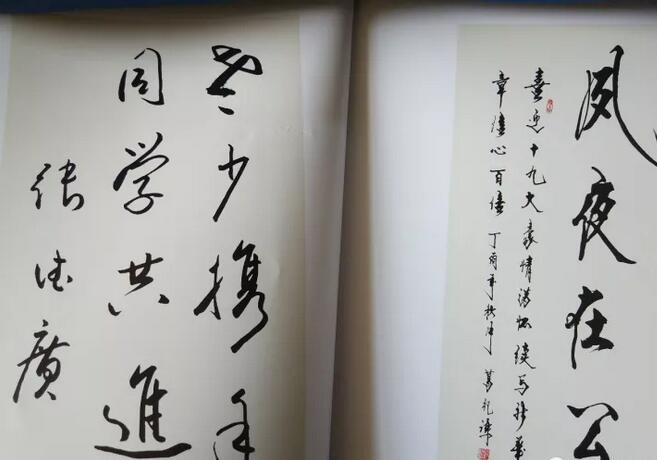 老少携手
同学共進
张德廣
夙夜在公
喜迎十九大豪情满怀续写新篇
章信心百倍 丁酉年 葛礼